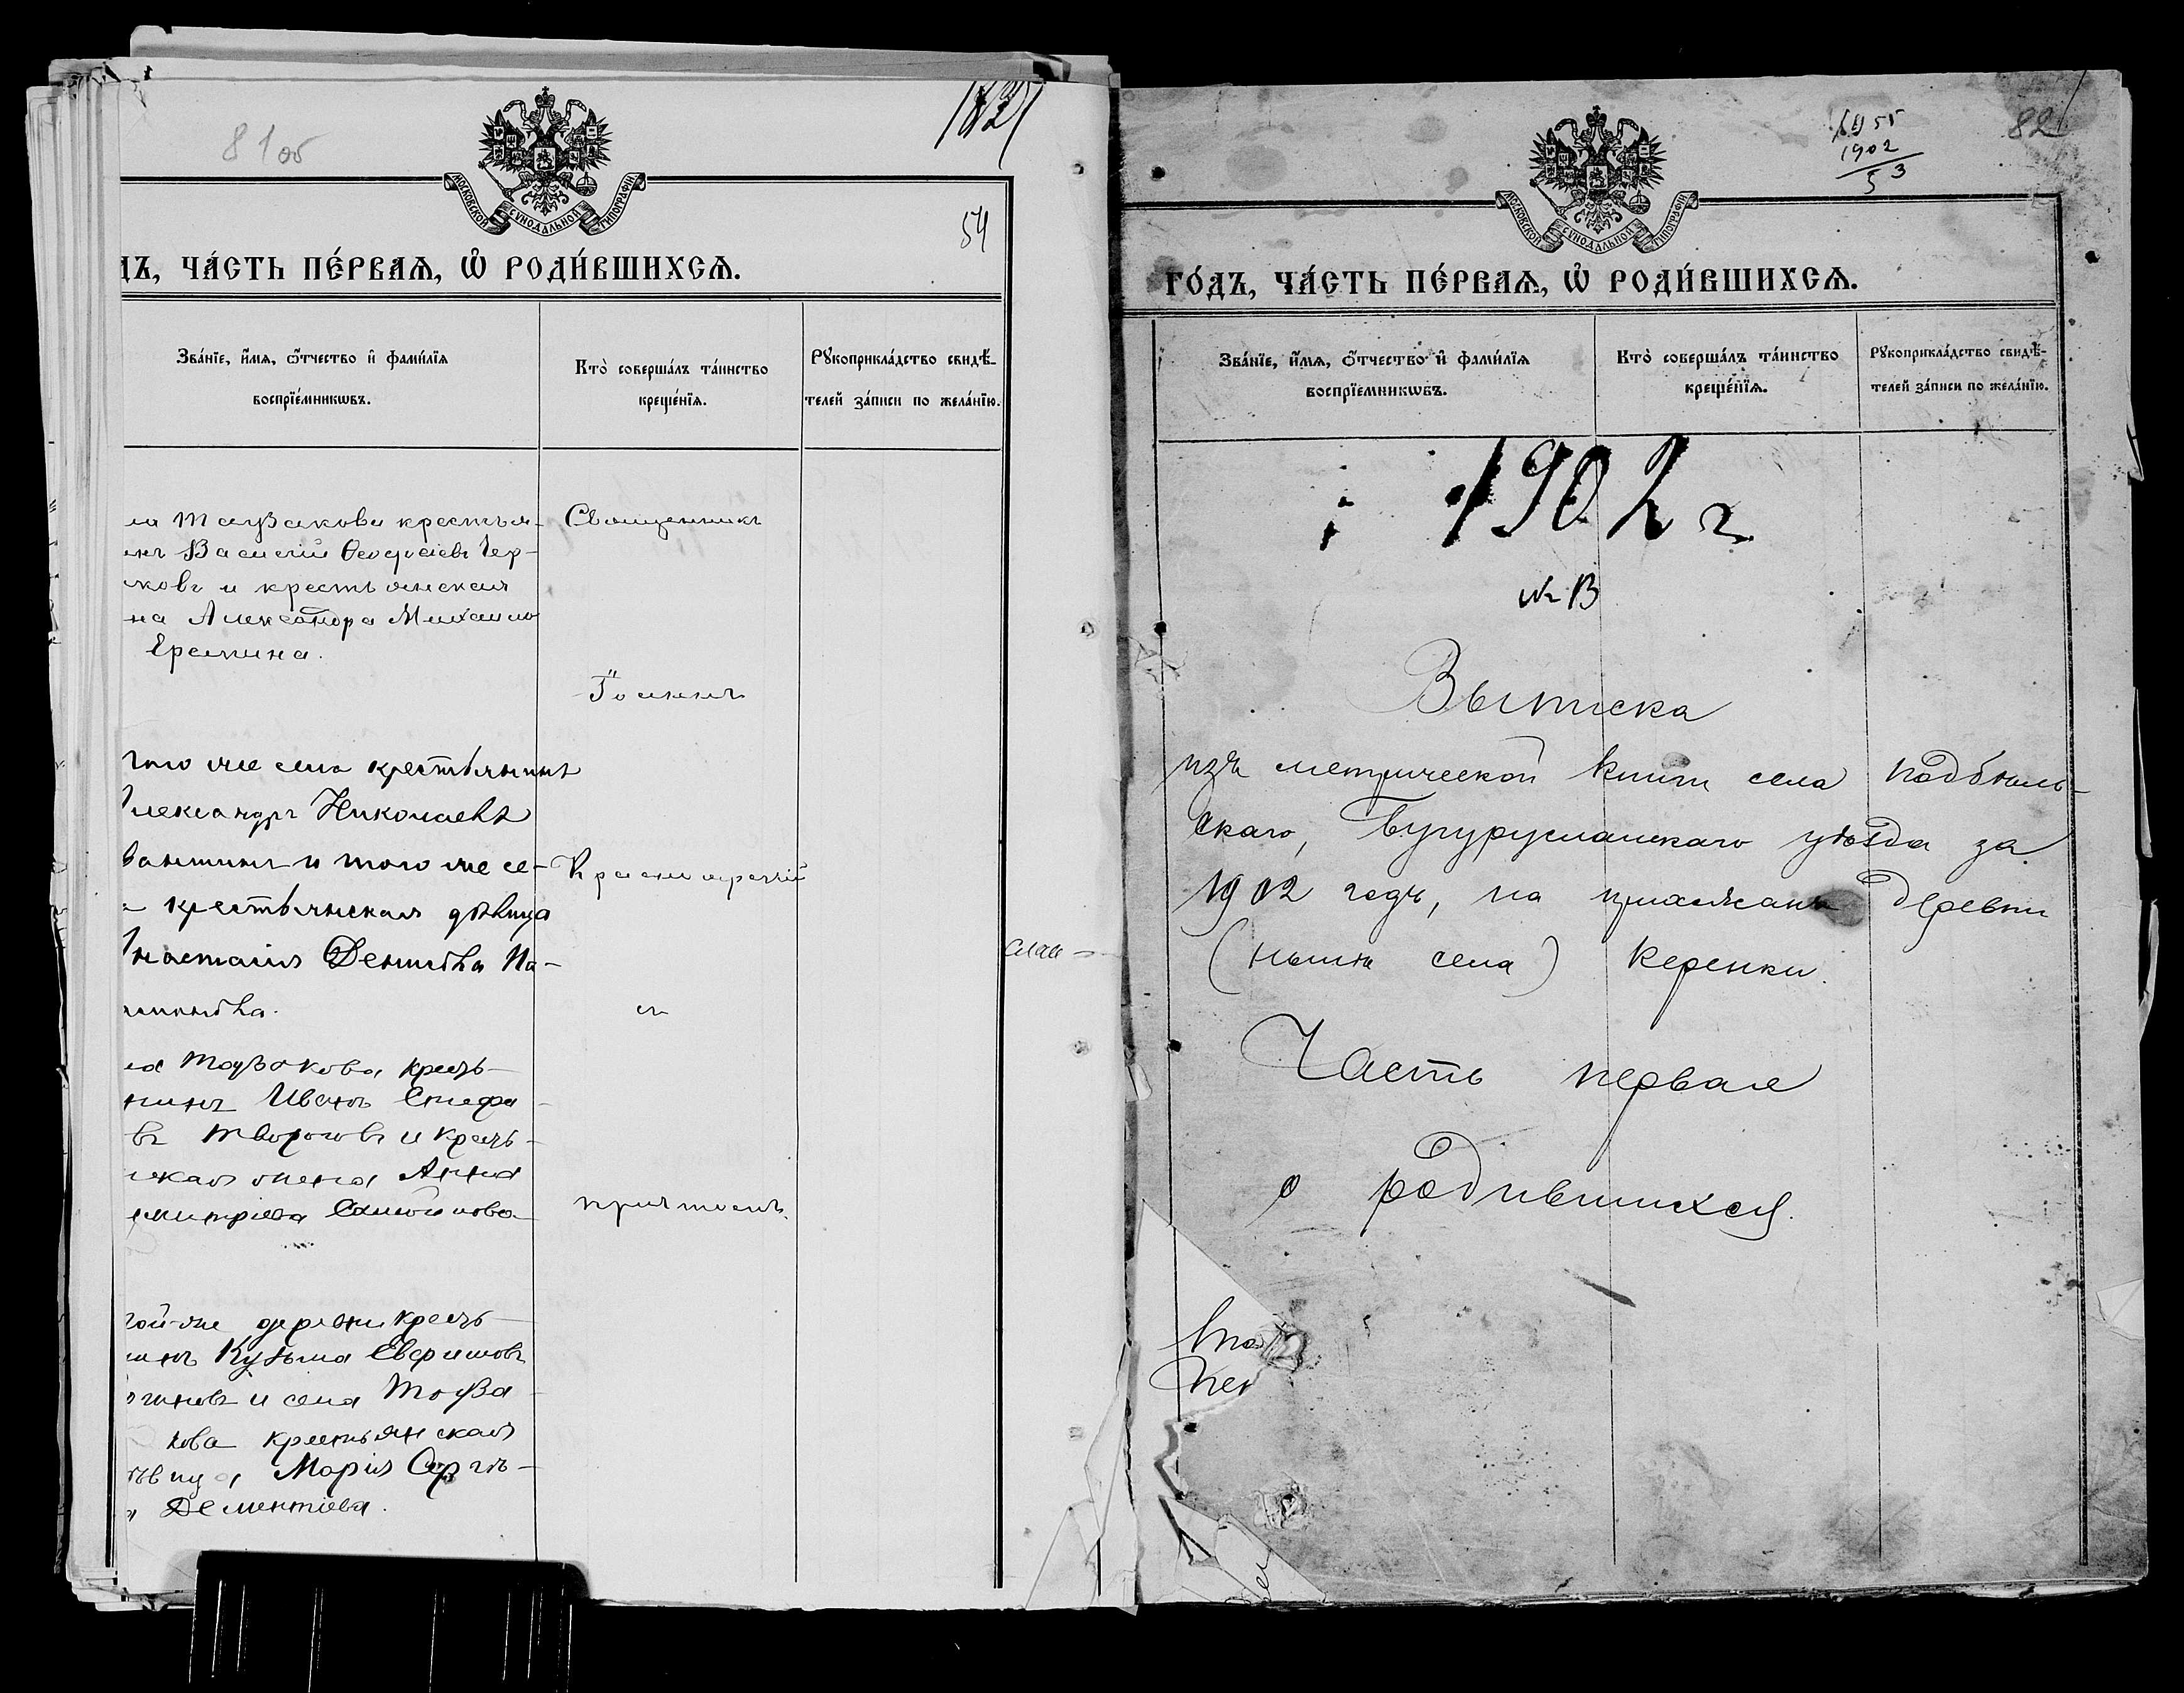 81 об
54
МОСКОВСКОЙ СѴНОДАЛЬНОЙ ТИПОГРАФІИ
ДЪ, ЧА́СТЬ ПЕ́РВАѦ, Ѡ҆ РОДИ́ВШИХСѦ.
Зва́нїе, и҆́мѧ, ѻ҆́тчество и҆ фами́лїѧ
воспрїе́мникѡвъ.
Кто̀ соверша́лъ та́инство
креще́нїѧ.
Рꙋкоприкла́дство свидѣ́-
телей за́писи по жела́нїю.
ла Таузакова крестья-
инъ Василій Ѳеодосіевъ Чер-
ковъ и крестьянская
на Александра Михайло
Еремина.
Священникъ
Іоаннъ
того же села крестьянинъ
Александръ Николаевъ
и того же се-
а крестьянская дѣвица
Анастасія Денисова Па-
Красногорскій
съ
ла Таузакова кресть-
нинъ Иванъ Епифа-
въ Твороговъ и кресть-
нская жена Анна
имитріева Самойлова
причтомъ.
той-же деревни кресть-
инъ Кузьма Евфимовъ
и села Тауза
кова крестьянская
дѣвица, Марія Сергѣ-
а Дементіева.
82
1955
1902
53
МОСКОВСКОЙ СѴНОДАЛЬНОЙ ТИПОГРАФІИ
ГО́ДЪ, ЧА́СТЬ ПЕ́РВАѦ, Ѡ҆ РОДИ́ВШИХСѦ.
Зва́нїе, и҆́мѧ, ѻ҆́тчество и҆ фами́лїѧ
воспрїе́мникѡвъ.
Кто̀ соверша́лъ та́инство
креще́нїѧ.
Рꙋкоприкла́дство свидѣ́-
телей за́писи по жела́нїю.
1902 г
№ 13
Выписка
изъ метрической книги села Подбѣль-
скаго, Бугурусланскаго уѣзда за
1902 годъ, на прихожанъ деревни
(нынѣ села) Керенки.
Часть первая
о родившихся.